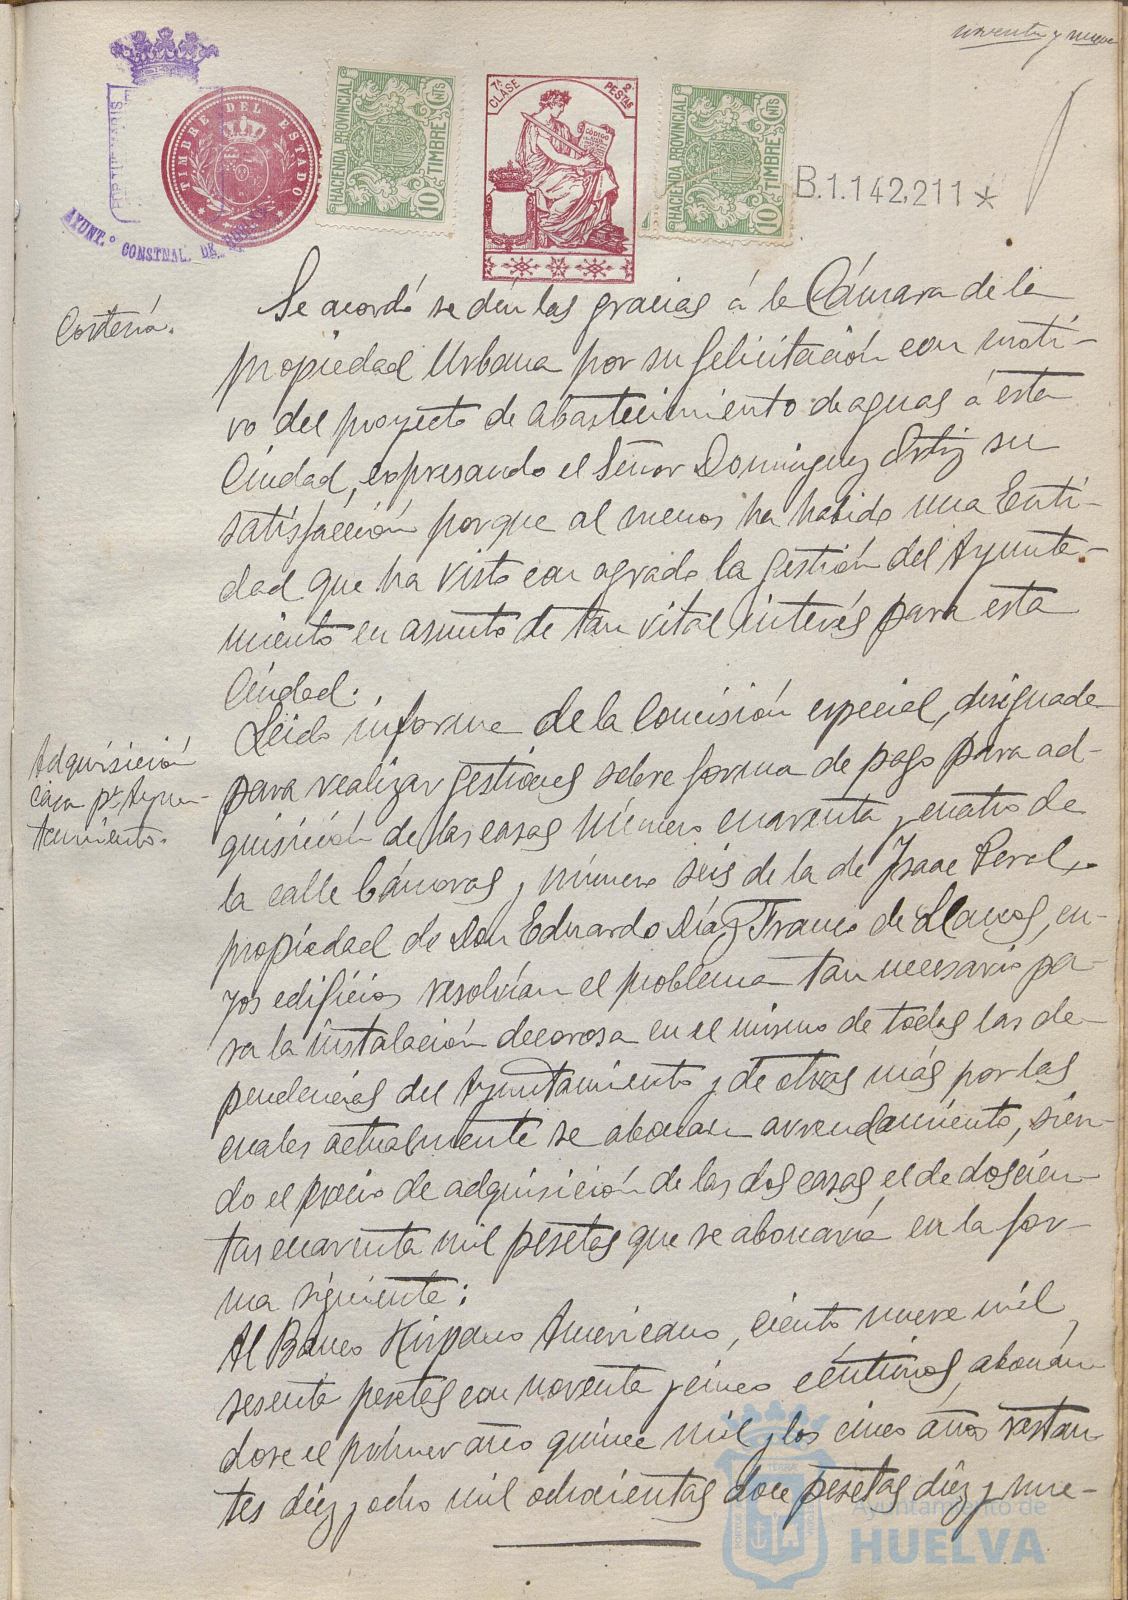 noventa y nueve
TIMBRE DEL ESTADO
AYUNT.º CONSTNAL. DE
HACIENDA PROVINCIAL
10 TIMBRE CNTS
7ª CLASE
2 PESETAS
CÓDIGO
HACIENDA PROVINCIAL
10 TIMBRE CNTS
B.1.142,211*
Cortesía.
Se acordó se den las gracias á la Cámara de la
propiedad Urbana por su felicitación con moti-
vo del proyecto de abastecimiento de aguas á esta
Ciudad, expresando el Señor Dominguez Ortiz su
satisfacción porque al menos ha habido una Enti-
dad que ha visto con agrado la gestión del Ayunta-
miento en asunto de tan vital interés para esta
Ciudad.
Adquisición
casa pª Ayun-
tamiento.
Leido informe de la Comisión especial, designada
para realizar gestiones sobre forma de pago para ad-
quisición de las casas número cuarenta y cuatro de
la calle Cánovas y número seis de la de Isaac Peral,
propiedad de Don Eduardo Díaz Franco de Llanos, cu-
yos edificios resolvían el problema tan necesario pa-
ra la instalación decorosa en el mismo de todas las de-
pendencias del Ayuntamiento y de otras más por las
cuales actualmente se abonan arrendamiento, sien-
do el precio de adquisición de las dos casas el de doscien-
tas cuarenta mil pesetas que se abonaría en la for-
ma siguiente:
Al Banco Hispano Americano, ciento nueve mil
sesenta pesetas con noventa y cinco céntimos, abonán-
dose el primer año quince mil y los cinco años restan-
tes diez y ocho mil ochocientas doce pesetas diez y nue-
Ayuntamiento de
HUELVA